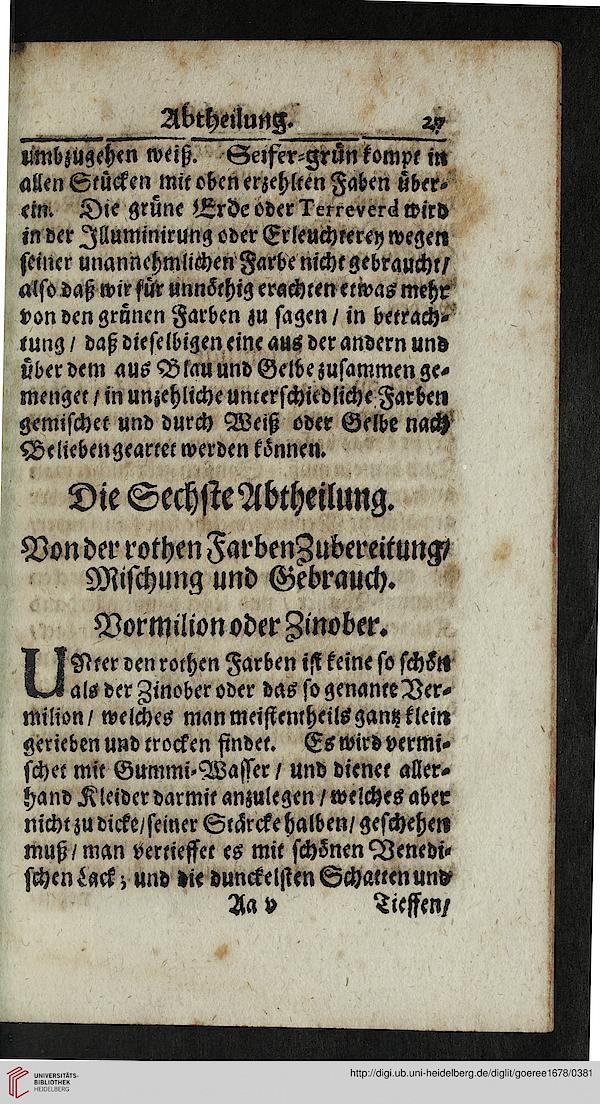 Abtheilung. 27
umbzugehen weiß. Seifer-grün kompt in
allen Stücken mit oben erzehlten Faben über-
ein. Die grüne Erde oder Terreverd wird
in der Illuminirung oder Erleuchterey wegen
seiner unannehmlichen Farbe nicht gebraucht /
also daß wir für unnöthig erachten etwas mehr
von den grünen Farben zu sagen / in betrach-
tung / daß dieselbigen eine aus der andern und
über dem aus Blau und Gelbe zusammen ge-
menget / in unzehliche unterschiedliche Farben
gemischet und durch Weiß oder Gelbe nach
Belieben geartet werden können.
Die Sechste Abtheilung.
Von der rothen Farben Zubereitung /
Mischung und Gebrauch.
Vormilion oder Zinober.
UNter den rothen Farben ist keine so schön
als der Zinober oder das so genante Ver-
milion / welches man meistentheils gantz klein
gerieben und trocken findet. Es wird vermi-
schet mit Gummi-Wasser / und dienet aller-
hand Kleider darmit anzulegen / welches aber
nicht zu dicke / seiner Stärcke halben / geschehen
muß / man vertieffet es mit schönen Venedi-
schen Lack; und die dunckelsten Schatten und
Aa v Tieffen /
UNIVERSITÄTS-
BIBLIOTHEK
HEIDELBERG
http://digi.ub.uni-heidelberg.de/diglit/goeree1678/0381